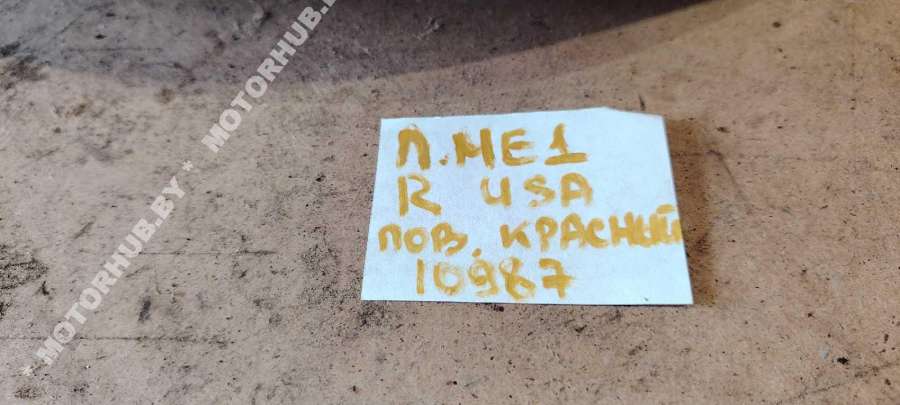 Л.МЕ1
R USA
ПОВ. КРАСНЫЙ
10987
* MOTORHUB.BY * MOTORHUB.BY